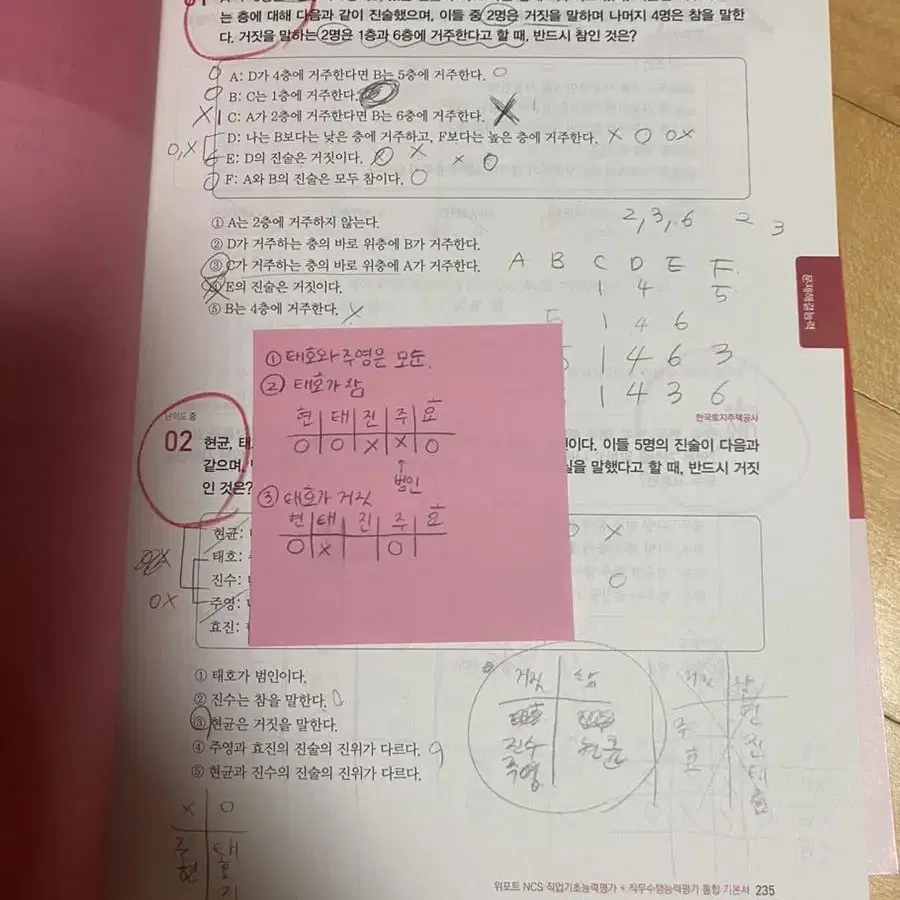 01
는 층에 대해 다음과 같이 진술했으며, 이들 중 2명은 거짓을 말하며 나머지 4명은 참을 말한
다. 거짓을 말하는 2명은 1층과 6층에 거주한다고 할 때, 반드시 참인 것은?
O A: D가 4층에 거주한다면 B는 5층에 거주한다. O
O B: C는 1층에 거주한다.
X C: A가 2층에 거주한다면 B는 6층에 거주한다. X
O,X D: 나는 B보다는 낮은 층에 거주하고, F보다는 높은 층에 거주한다. X O OX
E: D의 진술은 거짓이다. O X X O
O F: A와 B의 진술은 모두 참이다. O
① A는 2층에 거주하지 않는다. 2,3,6 2 3
② D가 거주하는 층의 바로 위층에 B가 거주한다.
③ C가 거주하는 층의 바로 위층에 A가 거주한다. A B C D E F
④ E의 진술은 거짓이다. 1 4 5
⑤ B는 4층에 거주한다. X 5 1 4 6
1 4 6 3
1 4 3 6
① 태호와 주영은 모순.
② 태호가 참
현 태 진 주 효
O O X X O
↑
범인
③ 태호가 거짓
현 태 진 주 효
O X O
난이도 중
한국토지주택공사
문제해결능력
02 현균, 태
이다. 이들 5명의 진술이 다음과
같으며,
실을 말했다고 할 때, 반드시 거짓
인 것은?
현균:
O X
태호:
진수:
O
OX 주영:
효진:
① 태호가 범인이다.
② 진수는 참을 말한다.
③ 현균은 거짓을 말한다.
④ 주영과 효진의 진술의 진위가 다르다.
⑤ 현균과 진수의 진술의 진위가 다르다.
거짓 참
진수 현균
주영
거짓 참
주 현
효 진
태
X O
주 태
현 효
진
위포트 NCS 직업기초능력평가 + 직무수행능력평가 통합 기본서 235